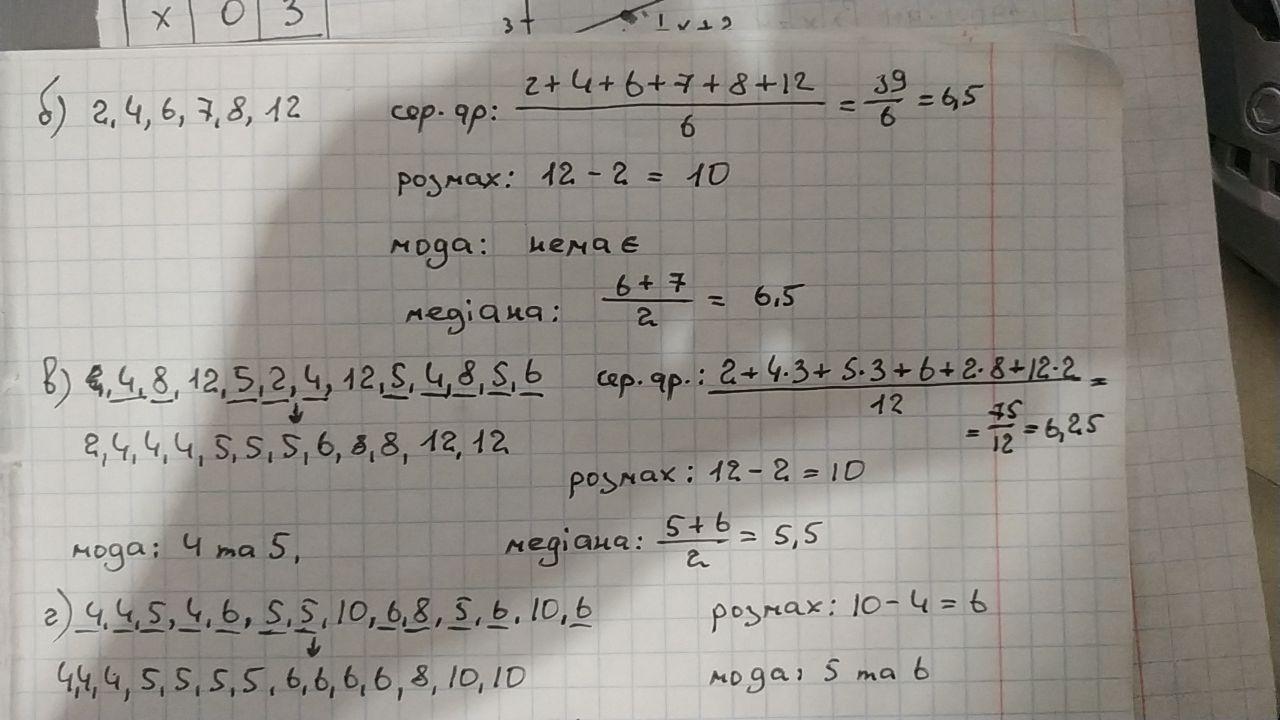 x 0 3
3
б) 2, 4, 6, 7, 8, 12 сер. ар: (2+4+6+7+8+12)/6 = 39/6 = 6,5
розмах: 12 - 2 = 10
мода: немає
медіана: (6+7)/2 = 6,5
в) 4, 8, 12, 5, 2, 4, 12, 5, 4, 8, 5, 6 сер. ар.: (2+4·3+5·3+6+2·8+12·2)/12 =
2, 4, 4, 4, 5, 5, 5, 6, 8, 8, 12, 12 = 75/12 = 6,25
розмах: 12 - 2 = 10
мода: 4 та 5, медіана: (5+6)/2 = 5,5
г) 4, 4, 5, 4, 6, 5, 5, 10, 6, 8, 5, 6, 10, 6 розмах: 10 - 4 = 6
4, 4, 4, 5, 5, 5, 5, 6, 6, 6, 6, 8, 10, 10 мода: 5 та 6